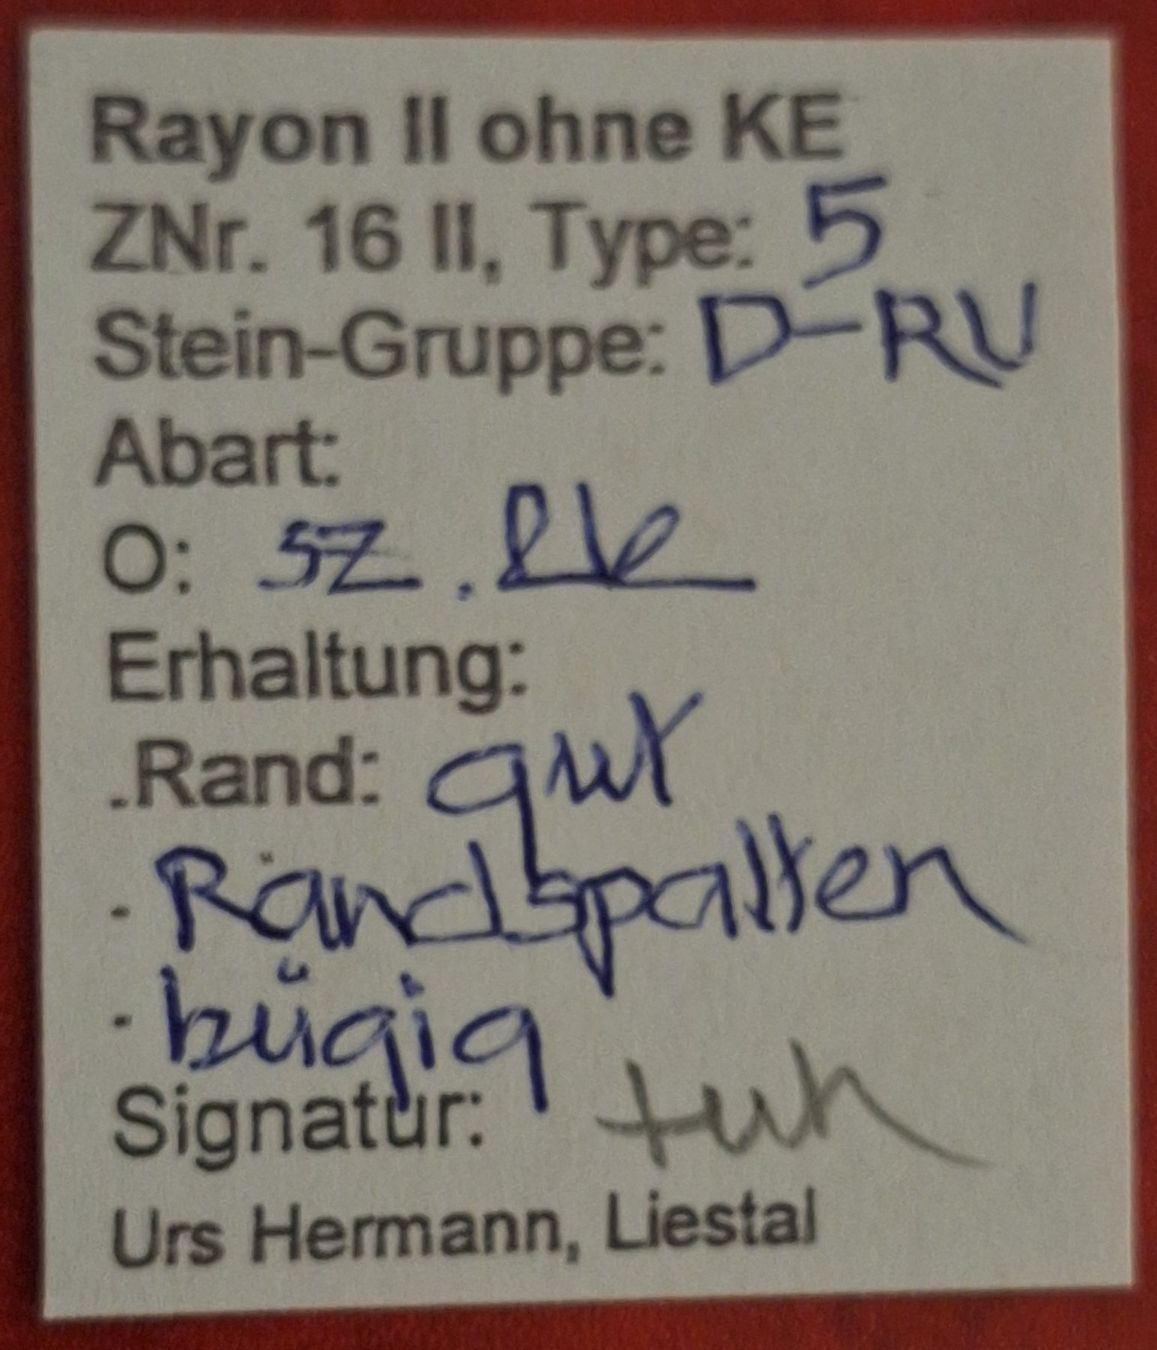 Rayon II ohne KE
ZNr. 16 II, Type: 5
Stein-Gruppe: D-RU
Abart:
O: sz.
Erhaltung:
.Rand: gut
- Randspalten
- bügig
Signatur:
Urs Hermann, Liestal